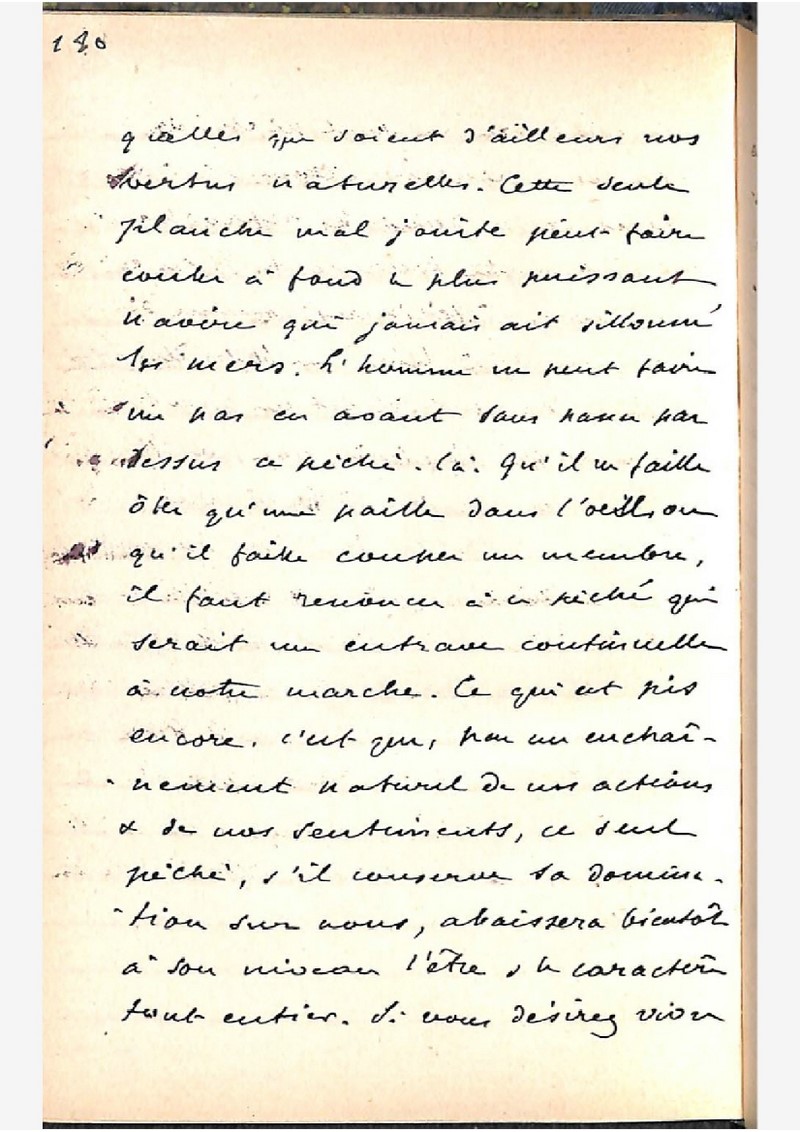 180
quelles que soient d'ailleurs nos
vertus naturelles. Cette seule
planche mal jointe peut faire
couler à fond le plus puissant
navire qui jamais ait sillonné
les mers. L'homme ne peut faire
un pas en avant sans passer par
dessus ce péché-là. Qu'il ne faille
ôter qu'une paille dans l'oeil ou
qu'il faille couper un membre,
il faut renoncer à ce péché qui
serait une entrave continuelle
à notre marche. Ce qui est pis
encore, c'est que, par un enchaî-
nement naturel de nos actions
& de nos sentiments, ce seul
péché, s'il conserve sa domina-
tion sur nous, abaissera bientôt
à son niveau l'être & le caractère
tout entier. Si vous désirez vivre